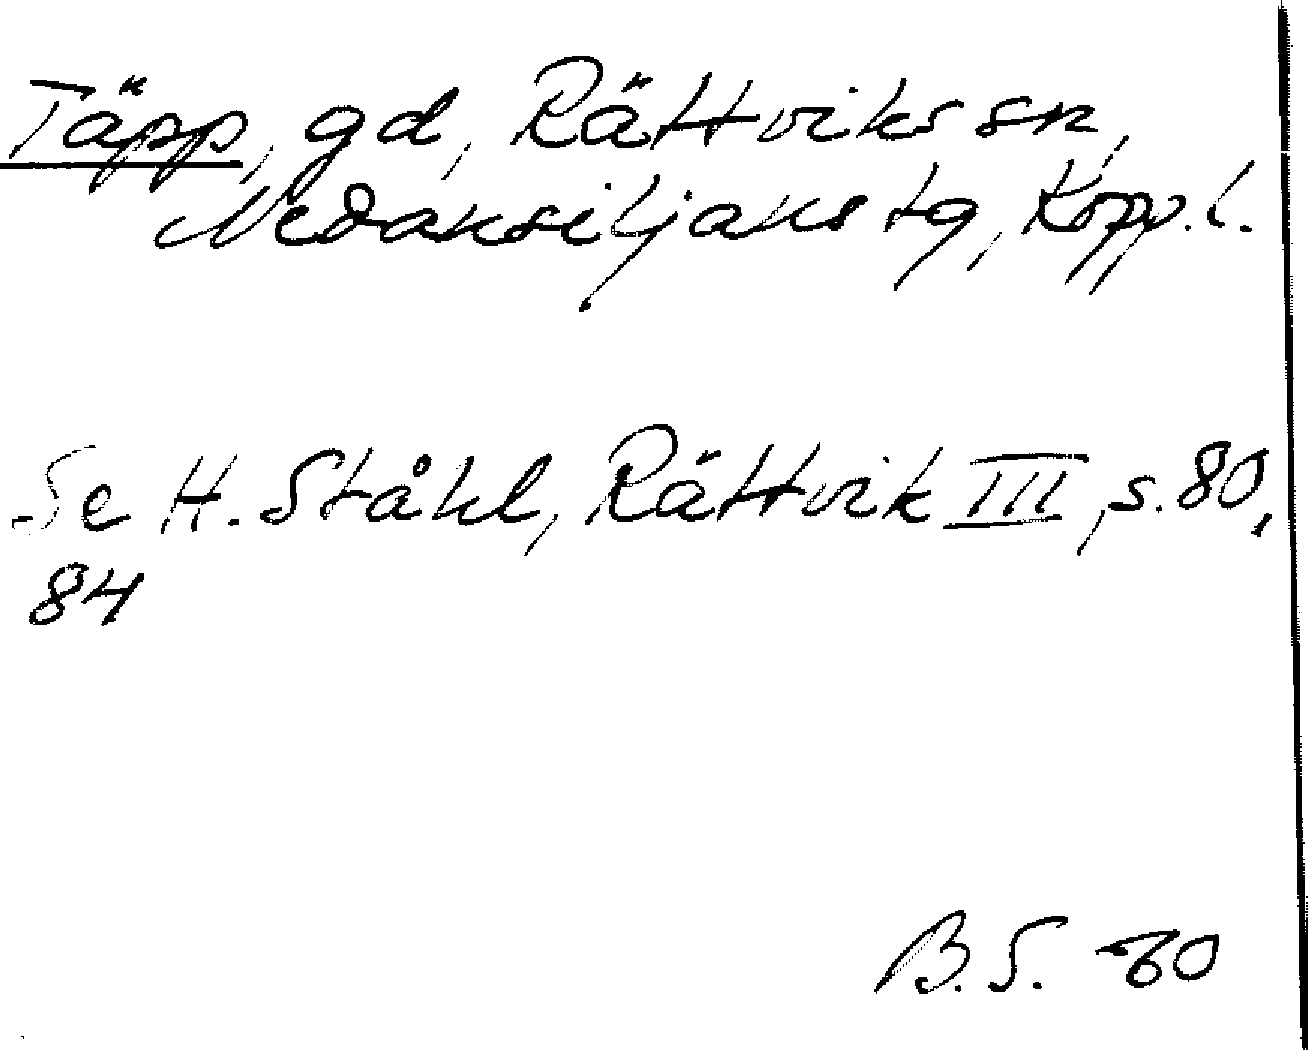 Täpp, gd, Rättviks sn,
Nedansiljans tg, Kopp. l.
Se H. Ståhl, Rättvik III, s. 80,
84
B. S. 80